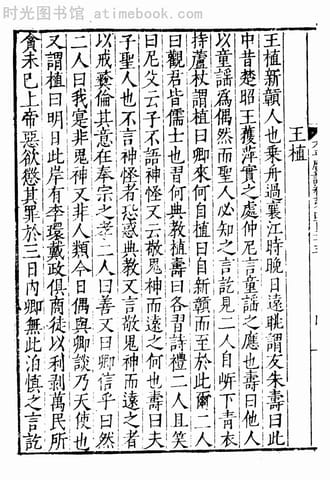 时光图书馆 - atimebook.com
王植
王植新贛人也乘舟過襄江時晚日遠眺謂友朱壽曰此
中昔楚昭王獲萍實之處仲尼言童謡之應也壽曰他人
以童謡為偶然而聖人必知之言訖見二人自岍下青衣
持蘆杖謂植曰卿來何自植曰自新贛而至於此爾二人
曰觀君皆儒士也習何典教植壽曰各習詩禮二人且笑
曰尼父云子不語神怪又云敬鬼神而遠之何也壽曰夫
子聖人也不言神怪者恐惑典教又言敬鬼神而遠之者
以戒彝倫其意在奉宗之孝二人曰善又曰卿信乎曰然
二人曰我寔非鬼神又非人類今日偶與卿談乃天使也
又謂植曰明日此岸有李環戴政俱商徒以利剥萬民所
貪未已上帝惡欲懲其罪於三日內卿無此泊慎之言訖